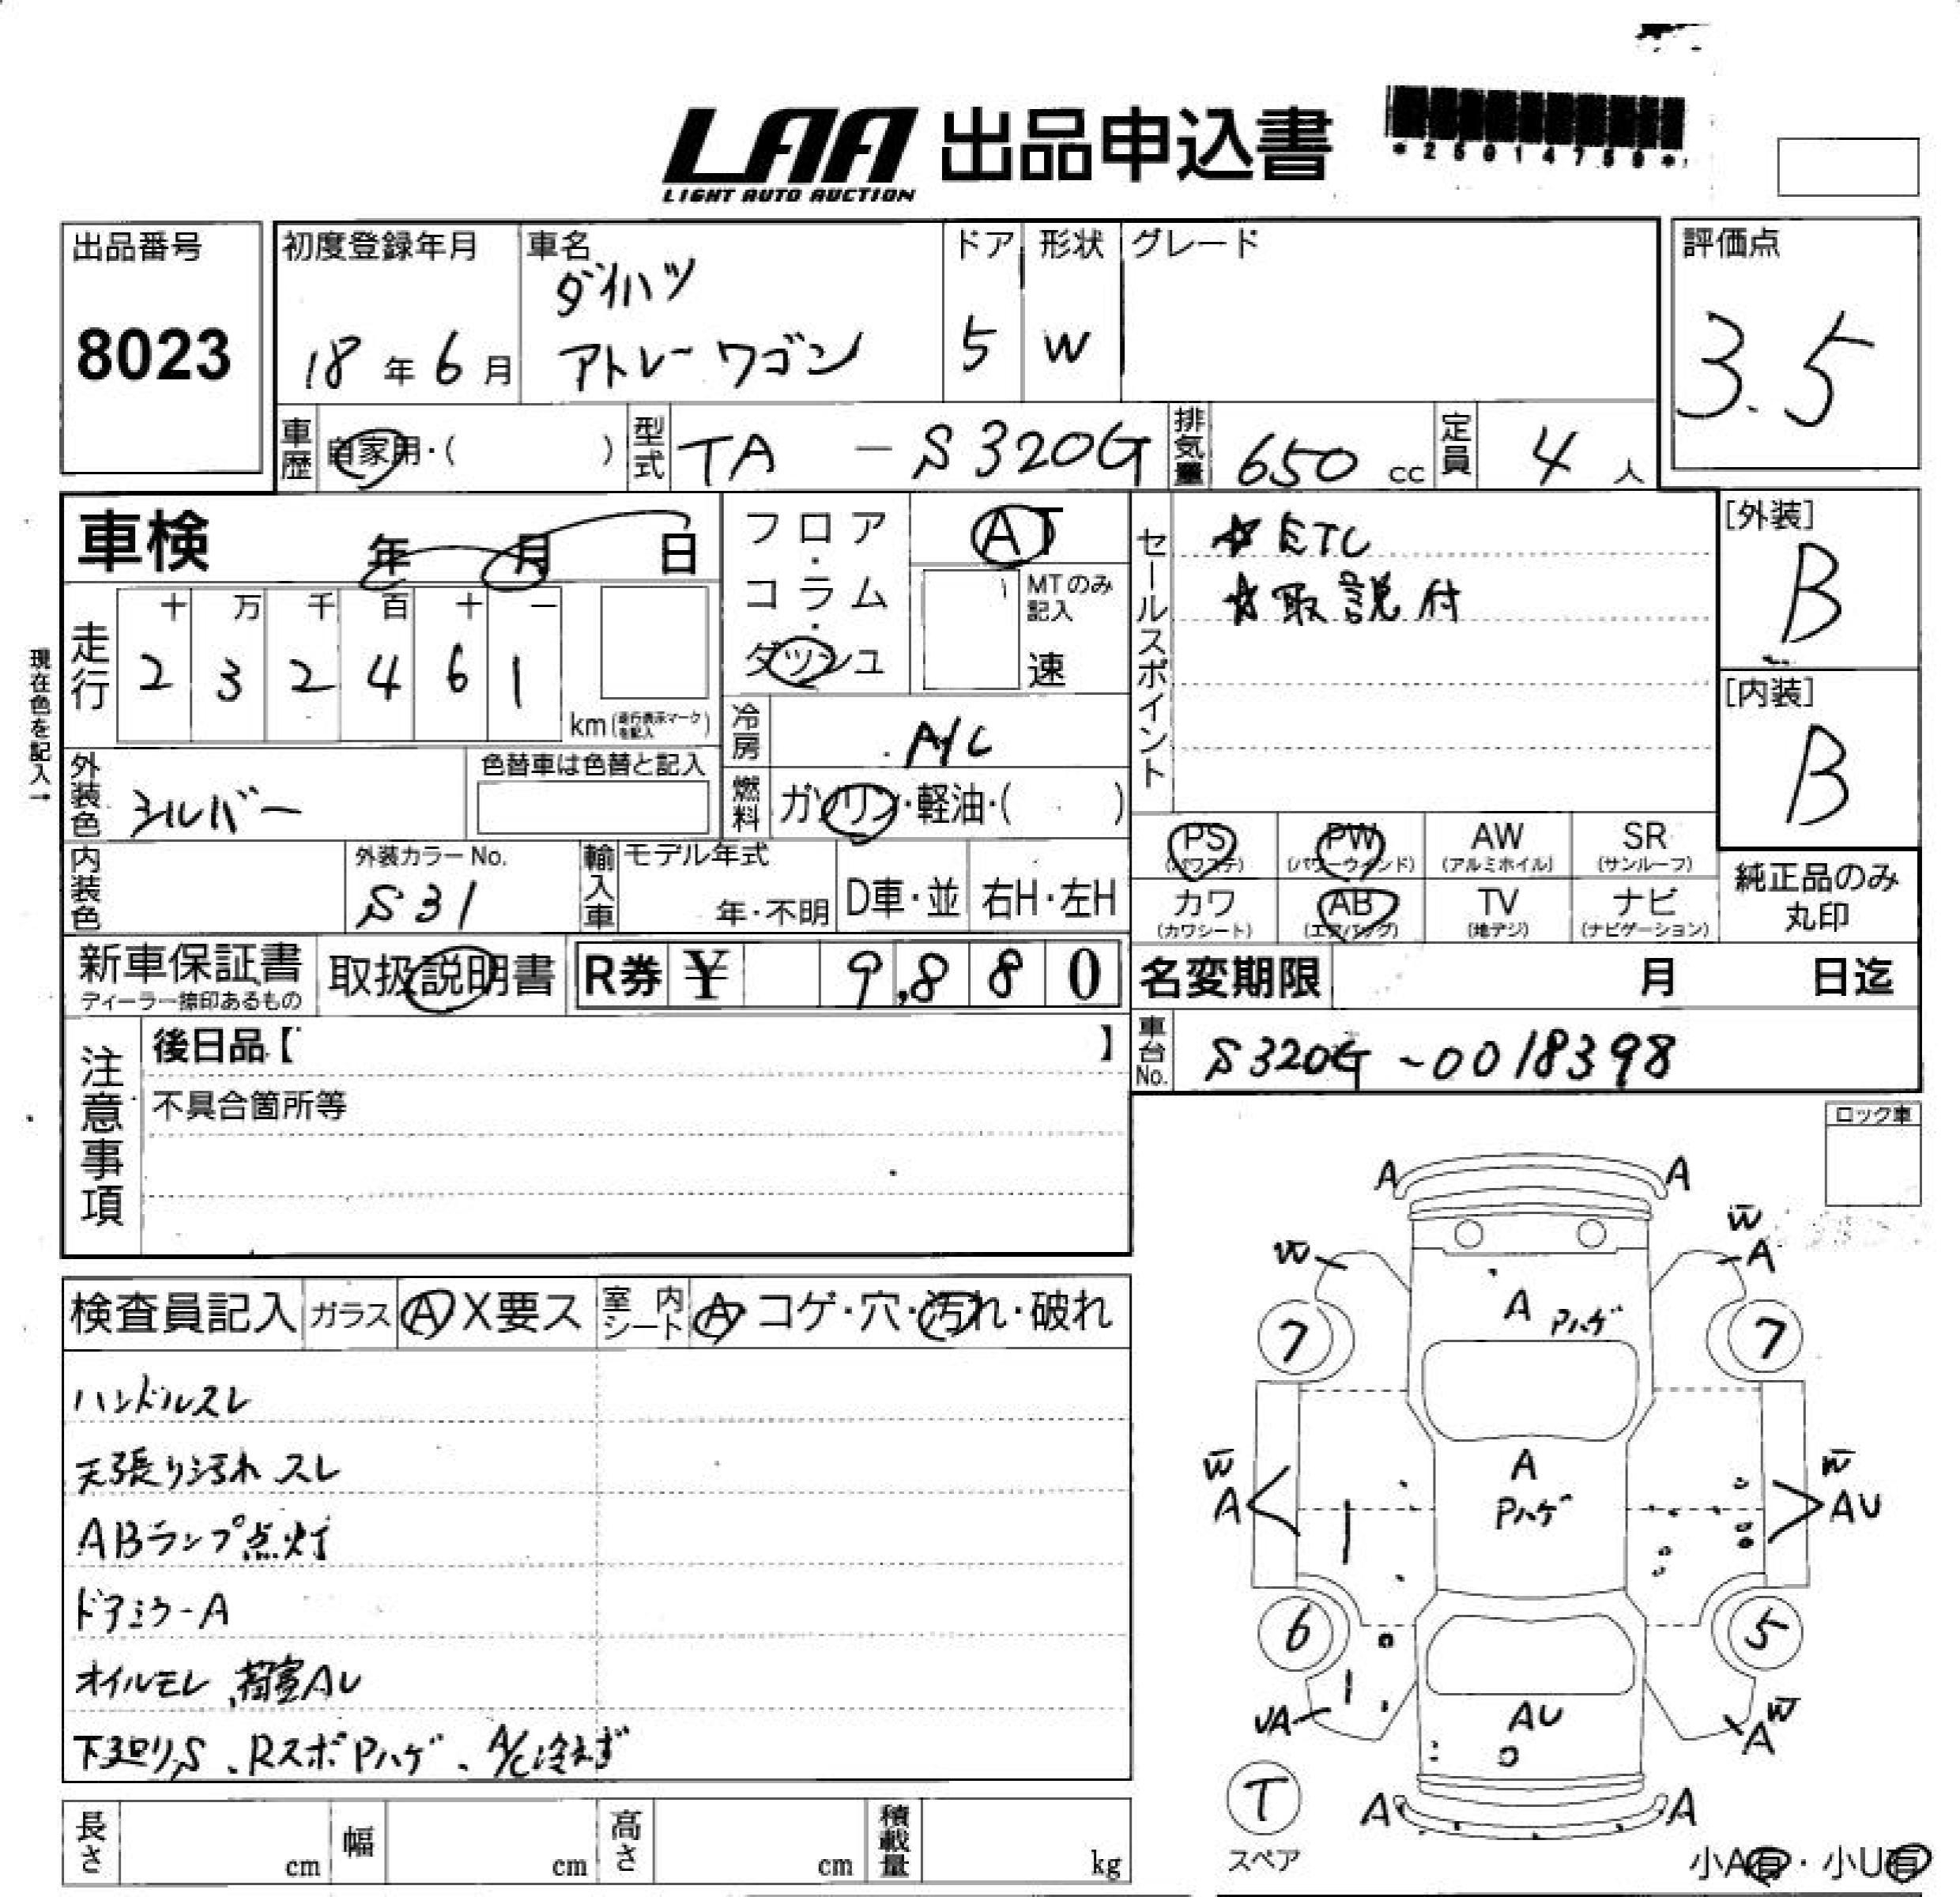 LAA 出品申込書
LIGHT AUTO AUCTION
*25014759*
出品番号
8023
初度登録年月
18年6月
車名
ダイハツ
アトレーワゴン
ドア
5
形状
W
グレード
評価点
3.5
車歴
自家用・( )
型式
TA - S320G
排気量
650 cc
定員
4 人
車検 年 月 日
フロア・コラム・ダッシュ
AT
MTのみ記入
速
セールスポイント
☆ETC
☆取説付
[外装]
B
[内装]
B
現在色を記入→
走行
十 万 千 百 十 一
2 3 2 4 6 1
km (走行表示マークを記入)
冷房
A/C
外装色
シルバー
色替車は色替と記入
燃料
ガソリン・軽油・( )
PS (パワステ)
PW (パワーウインド)
AW (アルミホイル)
SR (サンルーフ)
カワ (カワシート)
AB (エアバッグ)
TV (地デジ)
ナビ (ナビゲーション)
純正品のみ
丸印
内装色
外装カラーNo.
S31
輸入車
モデル年式
年・不明
D車・並
右H・左H
新車保証書
ディーラー捺印あるもの
取扱説明書
R券 ¥ 9,880
名変期限 月 日迄
車台No.
S320G-0018398
注意事項
後日品【 】
不具合箇所等
ロック車
検査員記入
ガラス
A X要ス
室内シート
A・コゲ・穴・汚れ・破れ
ハンドルスレ
天張り汚れ スレ
ABランプ点灯
ドアミラーA
オイルモレ、荷室AU
下廻りS、RスポPハゲ、A/C冷えず
A A
W W
A
A Pハゲ
7 7
W W
A AU
A
Pハゲ
6 5
UA AU W
A
T
スペア
A A
小A有・小U有
長さ cm
幅 cm
高さ cm
積載量 kg